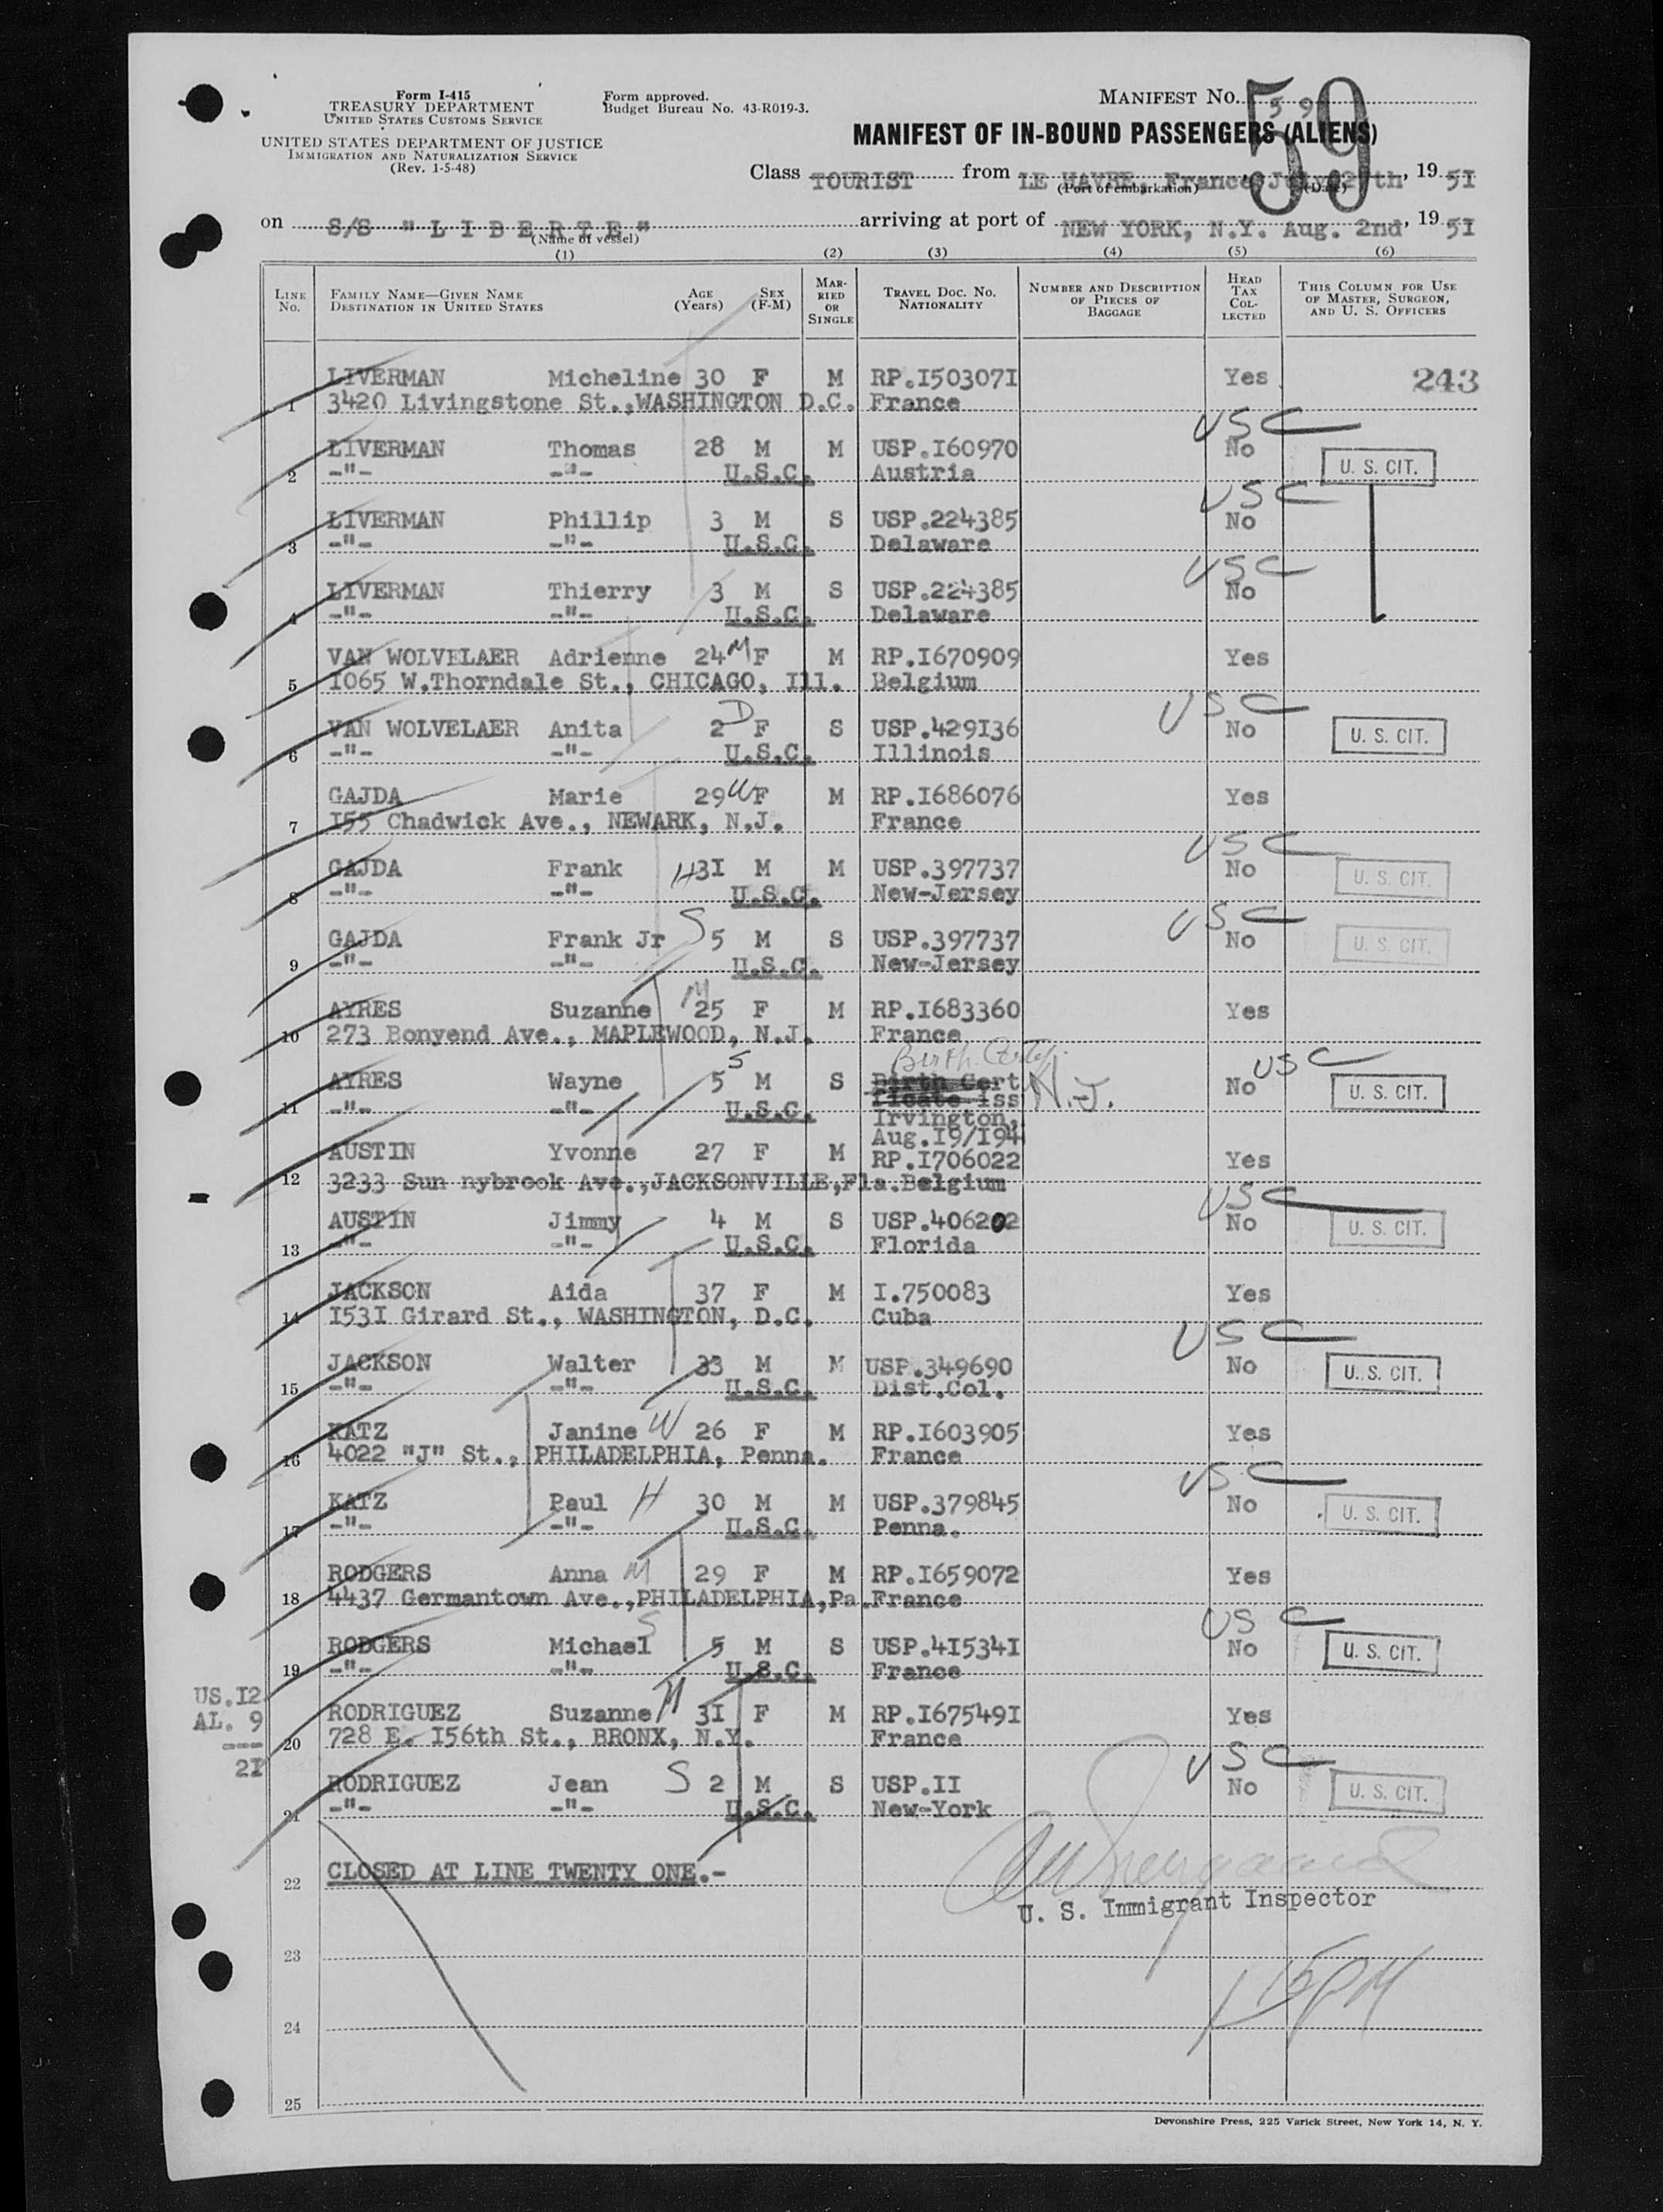 Form I-415
TREASURY DEPARTMENT
UNITED STATES CUSTOMS SERVICE
UNITED STATES DEPARTMENT OF JUSTICE
IMMIGRATION AND NATURALIZATION SERVICE
(Rev. 1-5-48)
Form approved.
Budget Bureau No. 43-R019-3.
MANIFEST NO. 59
59
MANIFEST OF IN-BOUND PASSENGERS (ALIENS)
Class TOURIST from LE HAVRE, France, July th, 19 5I
(Port of embarkation) (Date)
on S/S "L I B E R T E" arriving at port of NEW YORK, N.Y. Aug. 2nd, 19 5I
(Name of vessel)
(1) (2) (3) (4) (5) (6)
LINE No. FAMILY NAME—GIVEN NAME DESTINATION IN UNITED STATES AGE (Years) SEX (F-M) MARRIED OR SINGLE TRAVEL DOC. NO. NATIONALITY NUMBER AND DESCRIPTION OF PIECES OF BAGGAGE HEAD TAX COLLECTED THIS COLUMN FOR USE OF MASTER, SURGEON, AND U. S. OFFICERS
LIVERMAN Micheline 30 F M RP.I50307I Yes 243
1 3420 Livingstone St.,WASHINGTON D.C. France
USC
LIVERMAN Thomas 28 M M USP.I60970 No
2 -"- -"- U.S.C. Austria U. S. CIT.
USC
LIVERMAN Phillip 3 M S USP.224385 No
3 -"- -"- U.S.C. Delaware
USC
LIVERMAN Thierry 3 M S USP.224385 No
4 -"- -"- U.S.C. Delaware
VAN WOLVELAER Adrienne 24 M F M RP.I670909 Yes
5 I065 W.Thorndale St., CHICAGO, Ill. Belgium
USC
VAN WOLVELAER Anita 2 D F S USP.429I36 No U. S. CIT.
6 -"- -"- U.S.C. Illinois
GAJDA Marie 29 W F M RP.I686076 Yes
7 I55 Chadwick Ave., NEWARK, N.J. France
USC
GAJDA Frank H 3I M M USP.397737 No U. S. CIT.
8 -"- -"- U.S.C. New-Jersey
USC
GAJDA Frank Jr S 5 M S USP.397737 No U. S. CIT.
9 -"- -"- U.S.C. New-Jersey
AYRES Suzanne M 25 F M RP.I683360 Yes
10 273 Bonyend Ave., MAPLEWOOD, N.J. France
USC
AYRES Wayne 5 S M S Birth Cert No U. S. CIT.
11 -"- -"- U.S.C. ficate iss N.J.
Irvington,
Aug.I9/I94
AUSTIN Yvonne 27 F M RP.I706022 Yes
12 3233 Sun nybrook Ave.,JACKSONVILLE,Fla.Belgium
USC
AUSTIN Jimmy 4 M S USP.406202 No U. S. CIT.
13 -"- -"- U.S.C. Florida
JACKSON Aida 37 F M I.750083 Yes
14 I53I Girard St., WASHINGTON, D.C. Cuba
USC
JACKSON Walter 33 M M USP.349690 No U. S. CIT.
15 -"- -"- U.S.C. Dist.Col.
KATZ Janine W 26 F M RP.I603905 Yes
16 4022 "J" St., PHILADELPHIA, Penna. France
USC
KATZ Paul H 30 M M USP.379845 No U. S. CIT.
17 -"- -"- U.S.C. Penna.
RODGERS Anna M 29 F M RP.I659072 Yes
18 4437 Germantown Ave.,PHILADELPHIA,Pa.France
USC
RODGERS Michael S 5 M S USP.4I534I No U. S. CIT.
19 -"- -"- U.S.C. France
US.I2
AL. 9
---
2I
RODRIGUEZ Suzanne M 3I F M RP.I67549I Yes
20 728 E. I56th St., BRONX, N.Y. France
USC
RODRIGUEZ Jean S 2 M S USP.II No U. S. CIT.
21 -"- -"- U.S.C. New-York
22 CLOSED AT LINE TWENTY ONE.-
U. S. Immigrant Inspector
23
24
25
Devonshire Press, 225 Varick Street, New York 14, N. Y.